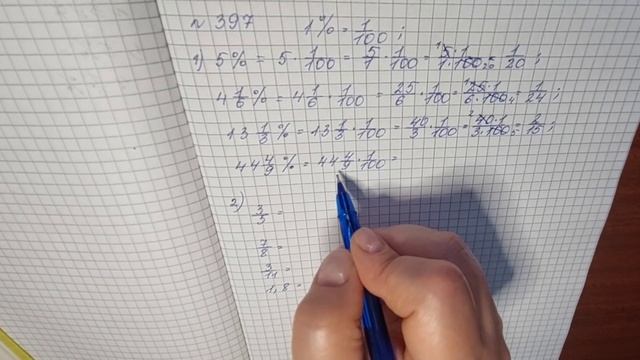 № 397 1% = 1/100 ;
1) 5% = 5 · 1/100 = 5/1 · 1/100 = 5·1/1·100 = 1/20 ;
4 1/6 % = 4 1/6 · 1/100 = 25/6 · 1/100 = 25·1/6·100 = 1/24 ;
13 1/3 % = 13 1/3 · 1/100 = 40/3 · 1/100 = 40·1/3·100 = 2/15 ;
44 4/9 % = 44 4/9 · 1/100 =
2) 3/5 =
7/8 =
3/11 =
1,8 =